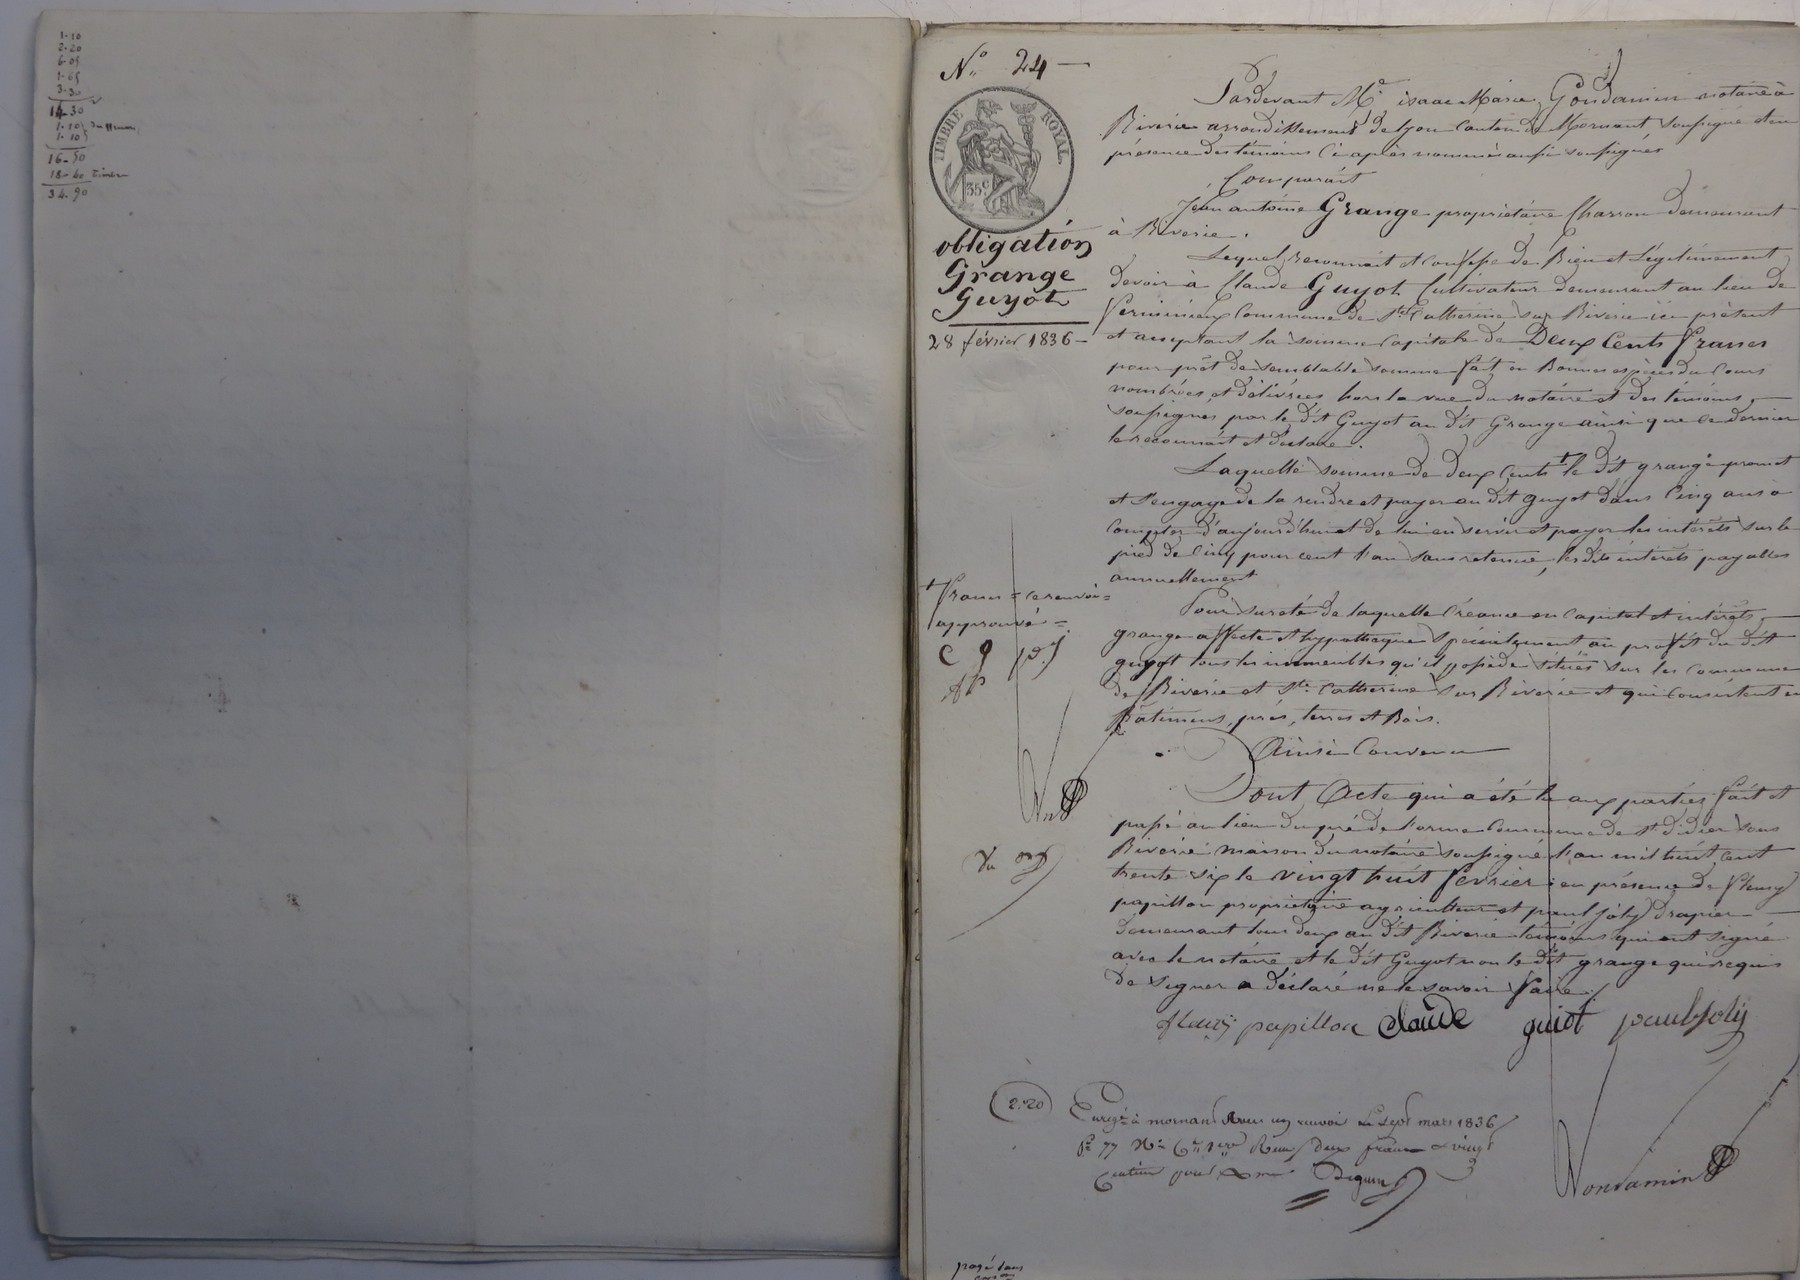 1-10
2-20
6-05
1-65
3-30
14-30
1-10
1-10
16-50
18-40 Timbre
34-90
N° 24
TIMBRE ROYAL.
35c
obligation
Grange
Guyot
28 février 1836
Pardevant Me isaac Marie Gondamin notaire à
Riverie arrondissement de Lyon Canton de Mornant soussigné et en
présence des témoins Ci après nommés aussi soussignés
Comparait
Jean antoine Grange propriétaire Charron demeurant
à Riverie.
Lequel reconnait et confesse de Bien et Légitimement
devoir à Claude Guyot Cultivateur demeurant au lieu de
Commune de Ste Catherine sur Riverie ici présent
et acceptant la somme Capitale de Deux Cents francs
pour prêt de semblable somme fait en Bonnes espèces du Cours
nombrées et délivrées hors la vue du notaire et des témoins
soussignés par le dit Guyot au dit Grange ainsi que ce dernier
le reconnait et déclare.
Laquelle somme de deux Cents + le dit grange promet
et s'engage de la rendre et payer au dit guyot dans Cinq ans à
Compter d'aujourd'hui et de lui en servir et payer les intérêts sur le
pied de Cinq pour cent l'an sans retenue, les dits intérêts payables
annuellement
+ francs = ce renvoi =
approuvé =
C g p.j
fp
Pour sureté de laquelle Créance en Capital et intérêts,
grange affecte et hypotheque spécialement au profit du dit
guyot tous les immeubles qu'il possède situés sur les Commune
de Riverie et Ste Catherine sur Riverie et qui Consistent en
Bâtiments, prés, terres et Bois.
Ainsi Convenu
Dont Acte qui a été lu aux parties fait et
passé au lieu du pré de l'orme Commune de St didier sous
Riverie maison du notaire soussigné l'an mil huit cent
trente six le vingt huit fevrier en présence de fleury
papillon propriétaire agriculteur et paul joly drapier
demeurant tous deux au dit Riverie témoins qui ont signé
avec le notaire et le dit Guyot non le dit grange qui requis
de signer a déclaré ne le savoir faire./.
fleury papillon claude guiot paul joly
2-20
Enregé à mornant avec un renvoi le sept mars 1836
fo 77 Ro Ce 1ere Reçu deux francs vingt
centimes pour
Gondamin
payé dans